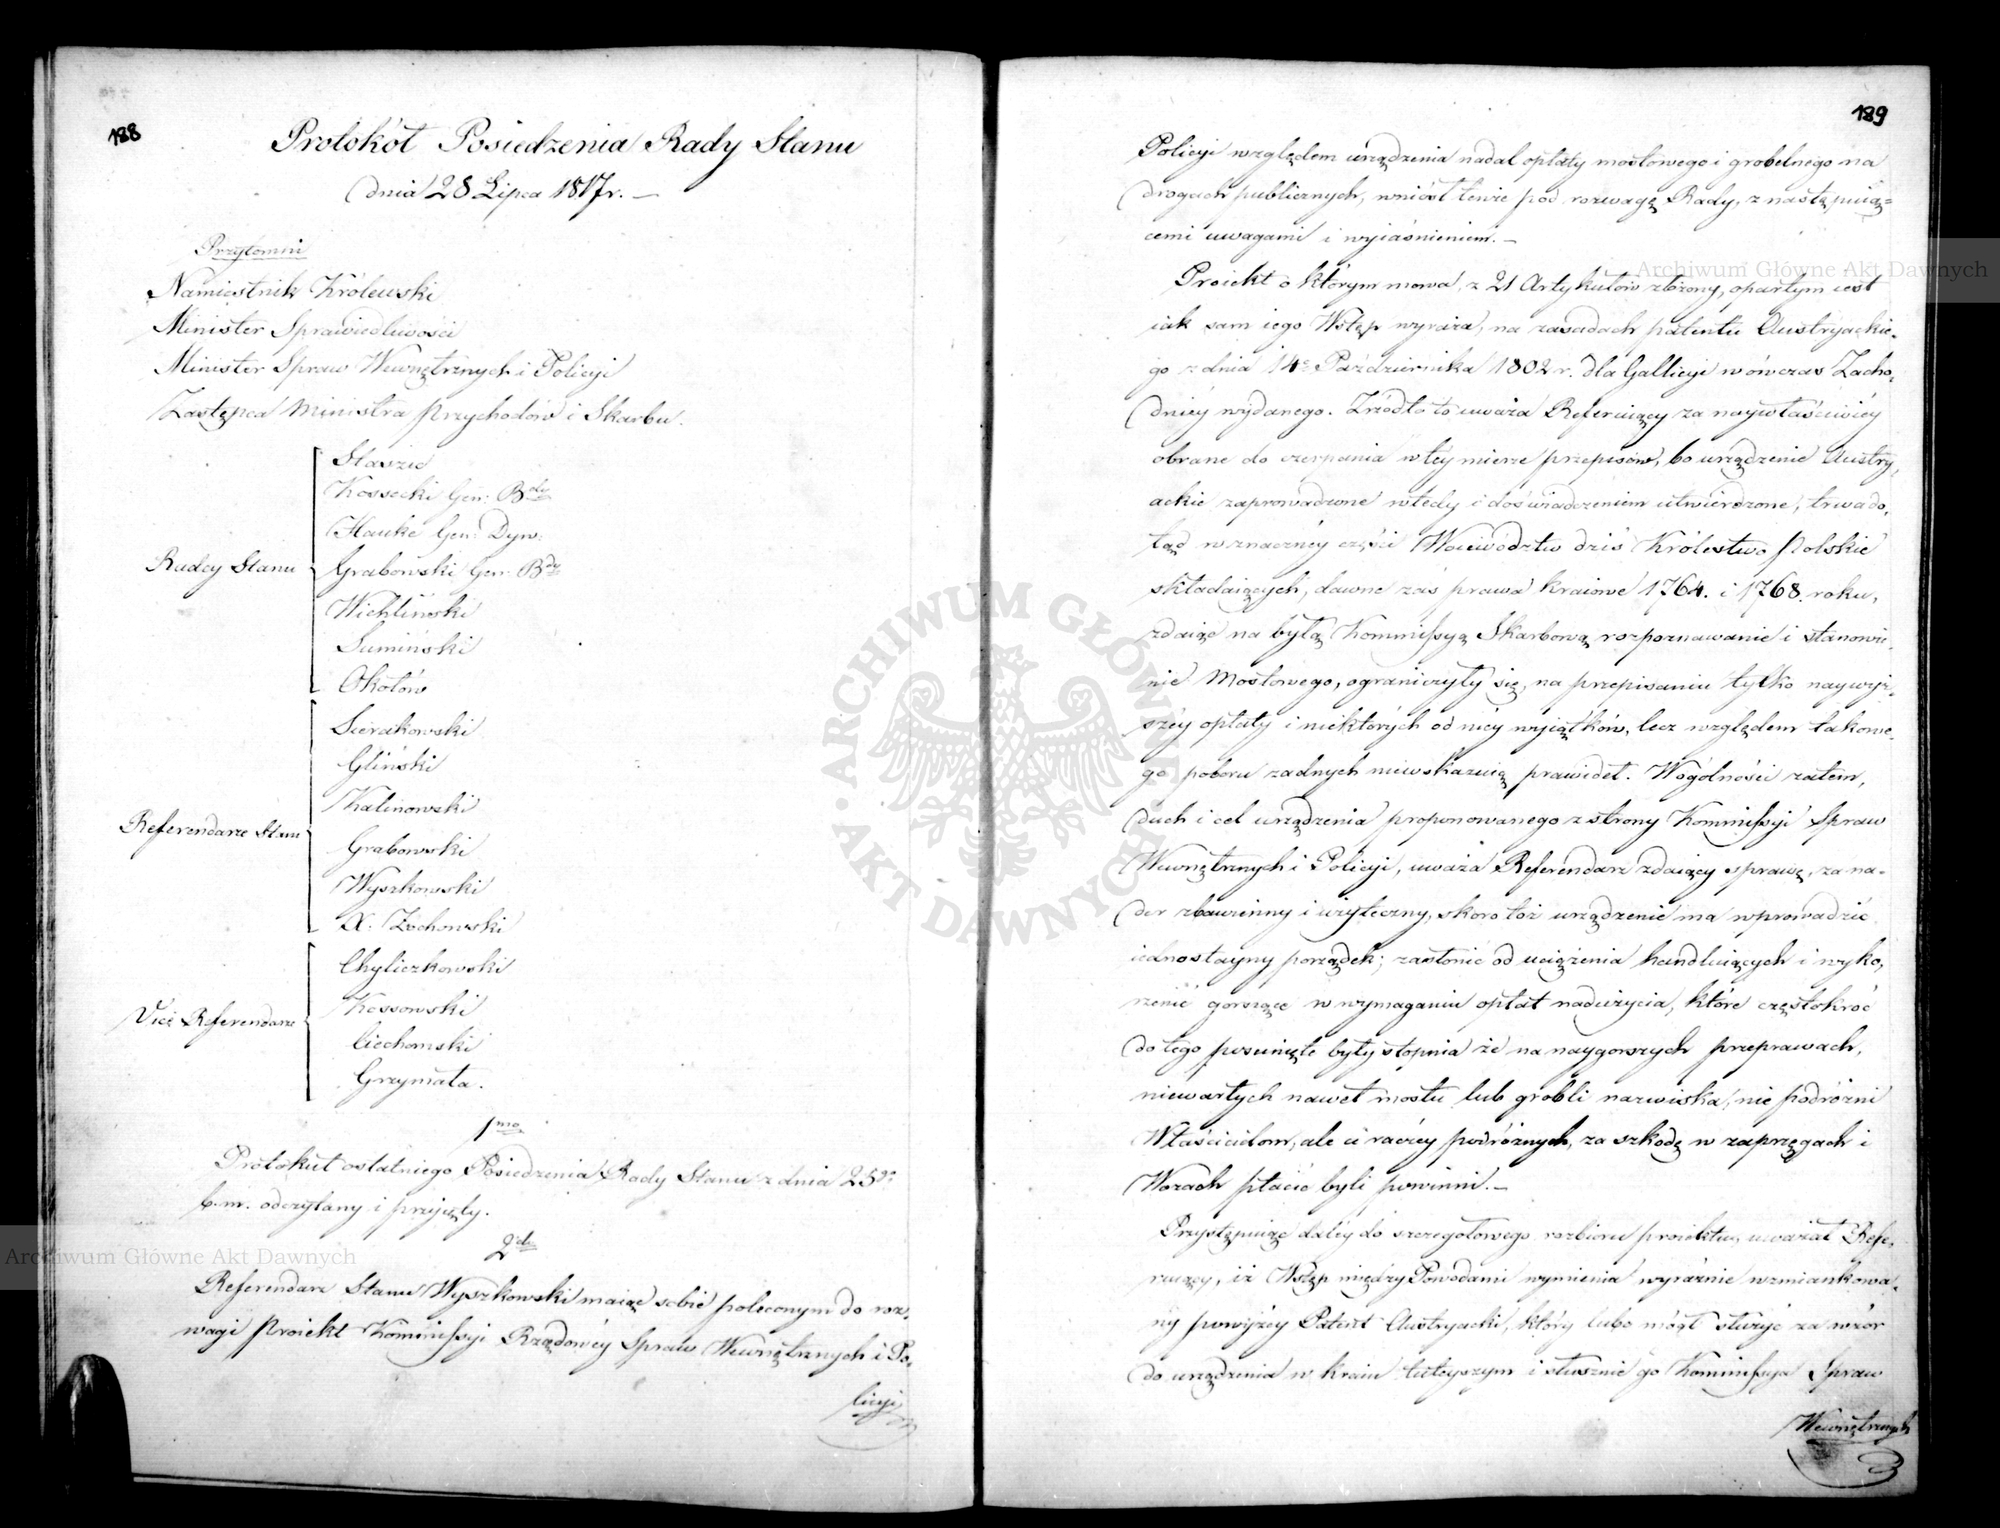 188
Protokół Posiedzenia Rady Stanu
dnia 28 Lipca 1817 r. —
Przytomni
Namiestnik Królewski
Minister Sprawiedliwości
Minister Spraw Wewnętrznych i Policyi
Zastępca Ministra Przychodów i Skarbu.
Radcy Stanu
Staszic
Kossecki Gen: Bdy
Hauke Gen: Dyw:
Grabowski Gen: Bdy
Wichliński
Sumiński
Okołów
Referendarze Stanu
Sierakowski
Gliński
Kalinowski
Grabowski
Wyszkowski
X. Żochowski
Vice Referendarze
Chyliczkowski
Kossowski
Ciechomski
Grzymała.
1mo
Protokuł ostatniego Posiedzenia Rady Stanu z dnia 25go
b. m. odczytany i przyięty.
2do
Referendarz Stanu Wyszkowski maiąc sobie poleconym do roz,
wagi Proiekt Kommissyi Rządowéy Spraw Wewnętrznych i Po,
licyi
189
Policyi względem urządzenia nadal opłaty mostowego i grobelnego na
drogach publicznych, wniósł tenże pod rozwagę Rady, z następuią=
cemi uwagami i wyiaśnieniem. —
Proiekt o którym mowa, z 21 Artykułów złożony, opartym iest
iak sam iego Wstęp wyraża, na zasadach patentu Austryackie,
go z dnia 14o Października 1802 r. dla Gallicyi wówczas Zacho,
dniéy wydanego. Zrzódło to uważa Referuiący za naywłaściwiéy
obrane do czerpania w téy mierze przepisów, bo urządzenie Austry,
ackie zaprowadzone wtedy i doświadczeniem utwierdzone, trwa do,
tąd w znacznéy części Woiewództw dziś Królestwo Polskie
składaiących, dawne zaś prawa kraiowe 1764. i 1768. roku,
zdaiąc na byłą Kommissyą Skarbową rozpoznawanie i stanowie,
nie Mostowego, ograniczyły się, na przepisaniu tylko naywyż,
széy opłaty i niektórych od niéy wyiątków, lecz względem takowe,
go poboru żadnych niewskazuią prawideł. Wogólności zatém,
duch i cel urządzenia proponowanego z strony Kommissyi Spraw
Wewnętrznych i Policyi, uważa Referendarz zdaiący sprawę, za na=
der zbawienny i użyteczny, skoro toż urządzenie ma wprowadzić
iednostayny porządek; zasłonić od uciążenia handluiących i wyko,
rzenić gorszące w wymaganiu opłat nadużycia, które częstokroć
do tego posunięte były stopnia że na naygorszych przeprawach,
niewartych nawet mostu lub grobli nazwiska, nie podróżni
Właścicielom, ale ci raczéy podróżnych, za szkodę w zaprzęgach i
Wozach płacić byli powinni. —
Przystępuiąc daléy do szczegółowego rozbioru proiektu, uważał Refe,
ruiący, iż Wstęp między Powodami wymienia wyraźnie wzmiankowa,
ny powyżéy Patent Austryacki, który lubo mógł służyć za wzór
do urządzenia w kraiu tuteyszym i słusznie go Kommissya Spraw
Wewnętrznych
Archiwum Główne Akt Dawnych
Archiwum Główne Akt Dawnych
ARCHIWUM GŁÓWNE AKT DAWNYCH